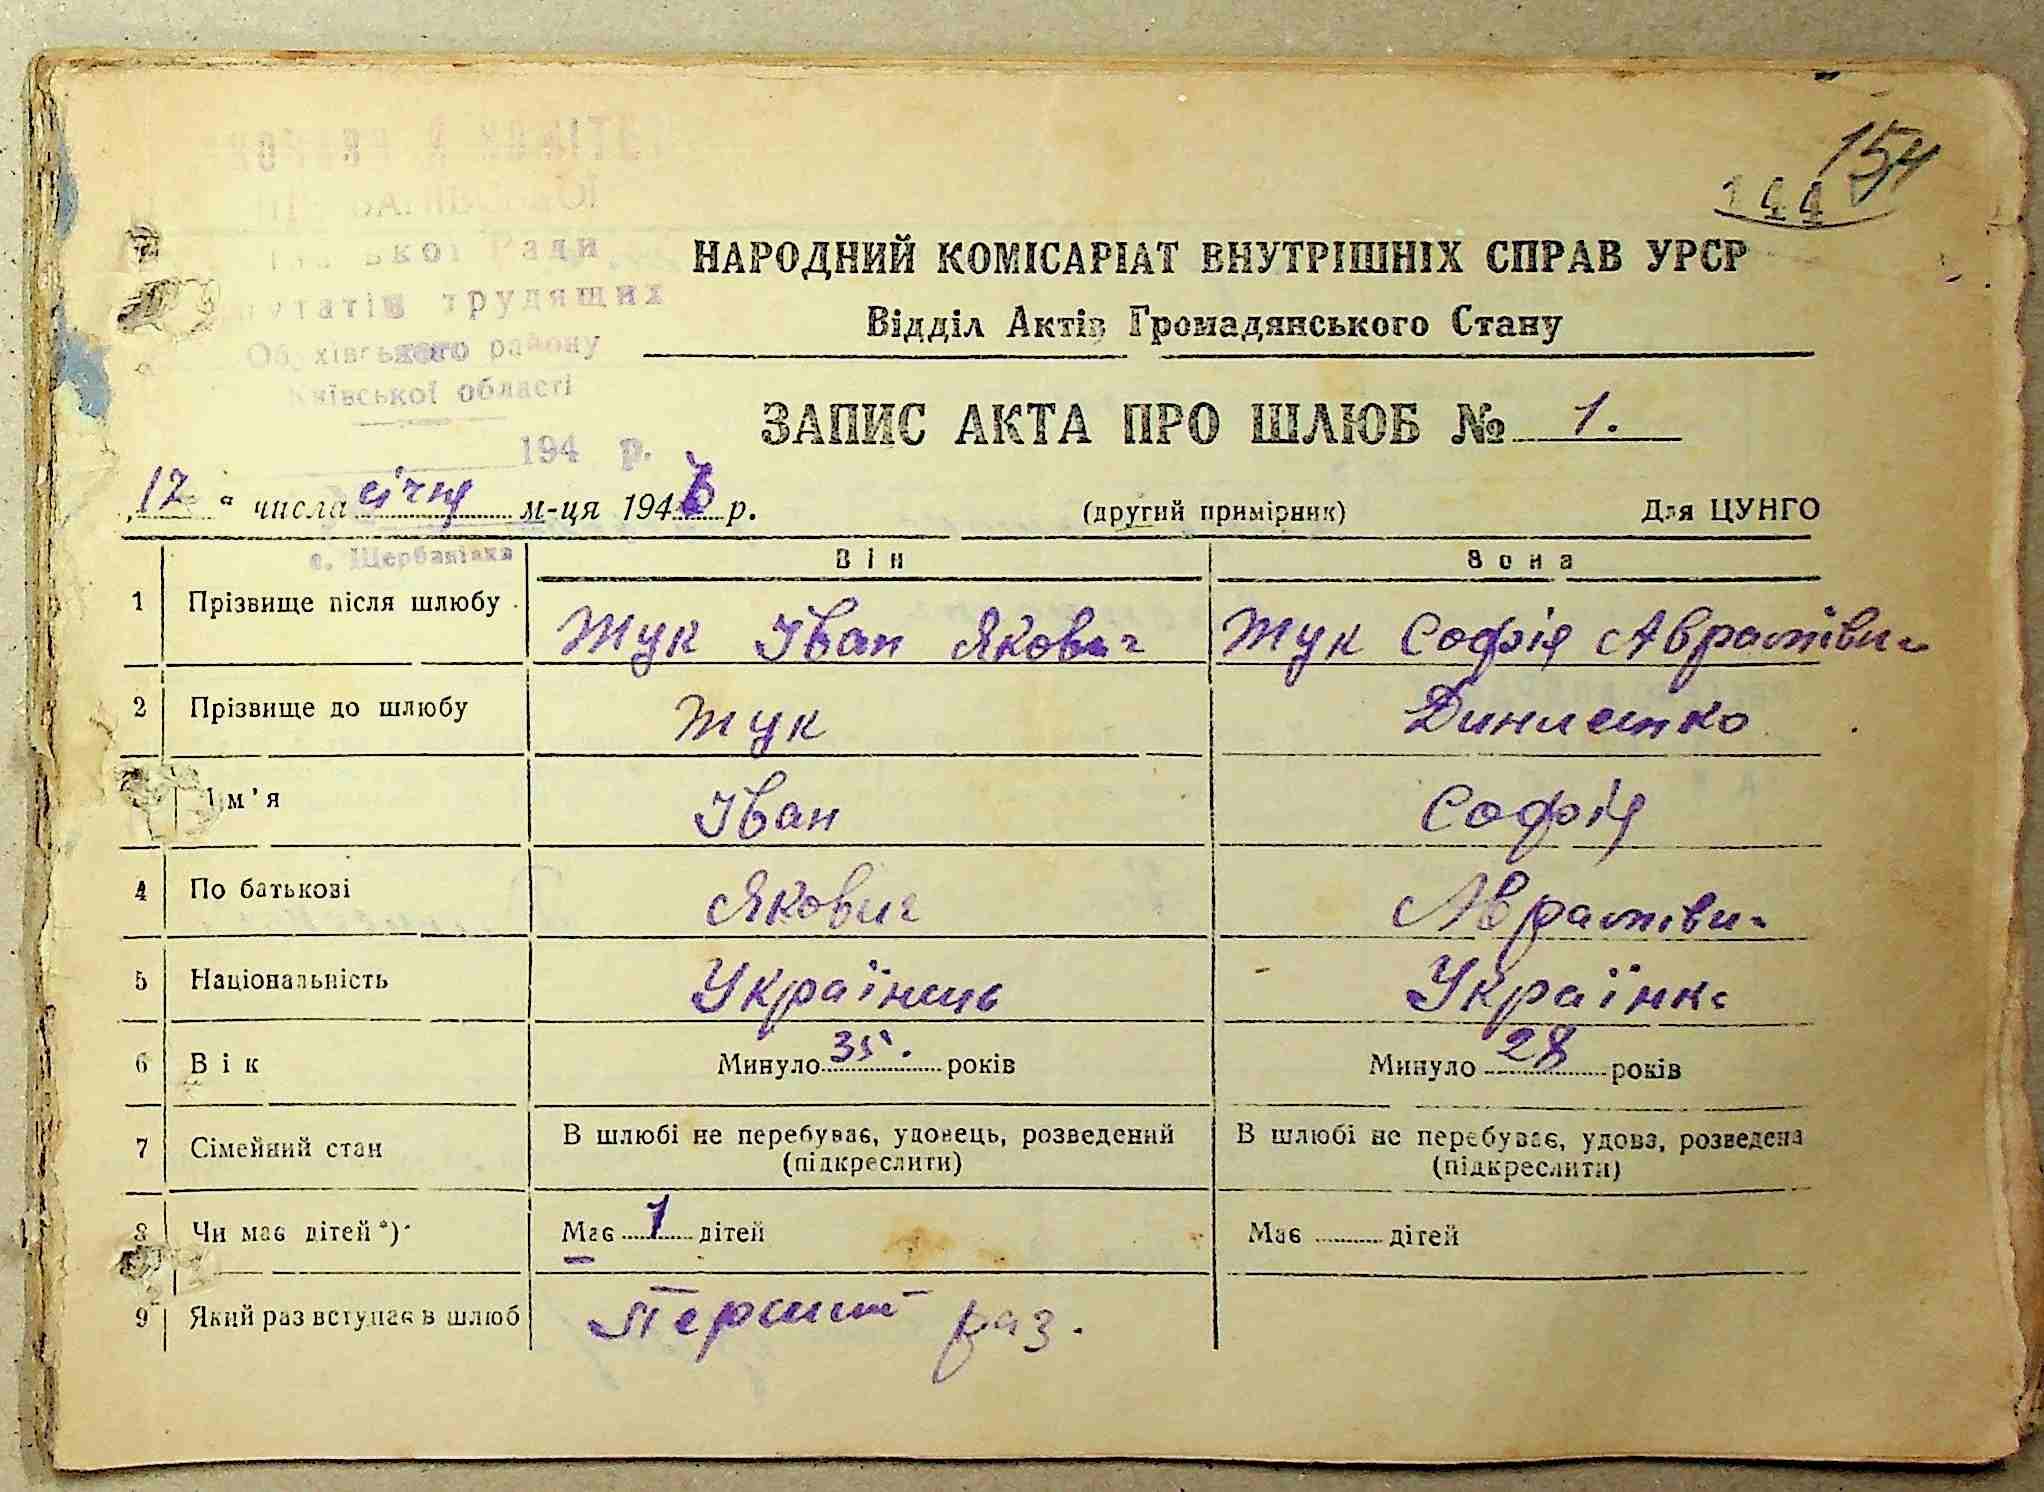 154
144
Ради
трудящих
Обухівського району
Київської області
194 р.
с. Щербанівка
НАРОДНИЙ КОМІСАРІАТ ВНУТРІШНІХ СПРАВ УРСР
Відділ Актів Громадянського Стану
ЗАПИС АКТА ПРО ШЛЮБ № 1.
„17“ числа січня м-ця 1946 р. (другий примірник) Для ЦУНГО
Він Вона
1 Прізвище після шлюбу Жук Іван Якович Жук Софія
2 Прізвище до шлюбу Жук
Ім'я Іван Софія
4 По батькові Якович
5 Національність Українець Українка
6 Вік Минуло 35. років Минуло 28 років
7 Сімейний стан В шлюбі не перебуває, удовець, розведений (підкреслити) В шлюбі не перебуває, удова, розведена (підкреслити)
8 Чи має дітей*) Має 1 дітей Має дітей
9 Який раз вступає в шлюб Перший раз.